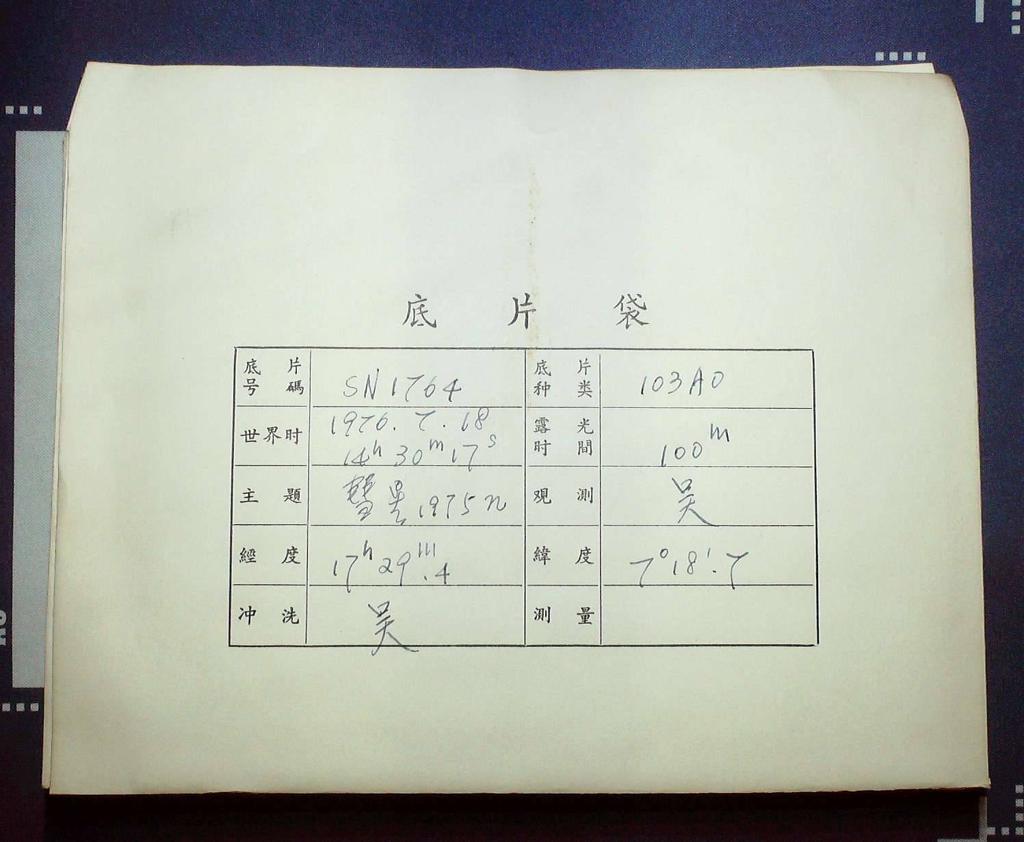 底 片 袋
底片号碼 SN1764 底片种类 103AO
世界时 1976.7.18 14h 30m 17s 露光时間 100m
主題 彗星 1975n 观測 吴
經度 17h 29m.4 緯度 7°18'.7
冲洗 吴 測量